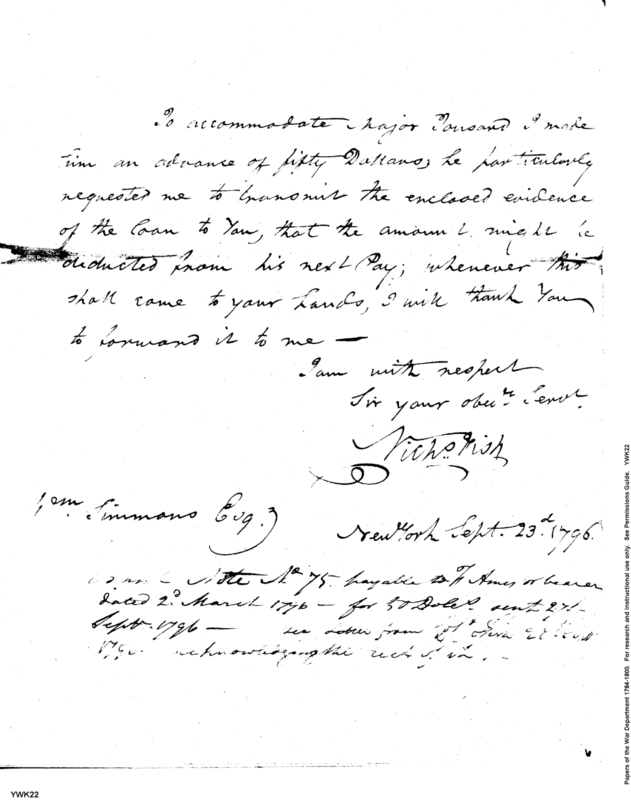 To accommodate Major Tousard I made
him an advance of fifty Dollars; he particularly
requested me to transmit the enclosed evidence
of the Loan to You, that the amount might be
deducted from his next Pay; whenever this
shall come to your hands, I will thank You
to forward it to me —
I am with respect
Sir your obedt. Servt.
Nichs Fish
Wm Simmons Esq.
New York Sept. 23d. 1796.
Note No 75 payable to F Ames or bearer
dated 2d March 1796 — for 50 Dolls. sent 27th
Sept. 1796 — see letter from Fish
acknowledging the rect of it. —
Papers of the War Department 1784-1800. For research and instructional use only. See Permissions Guide. YWK22
YWK22